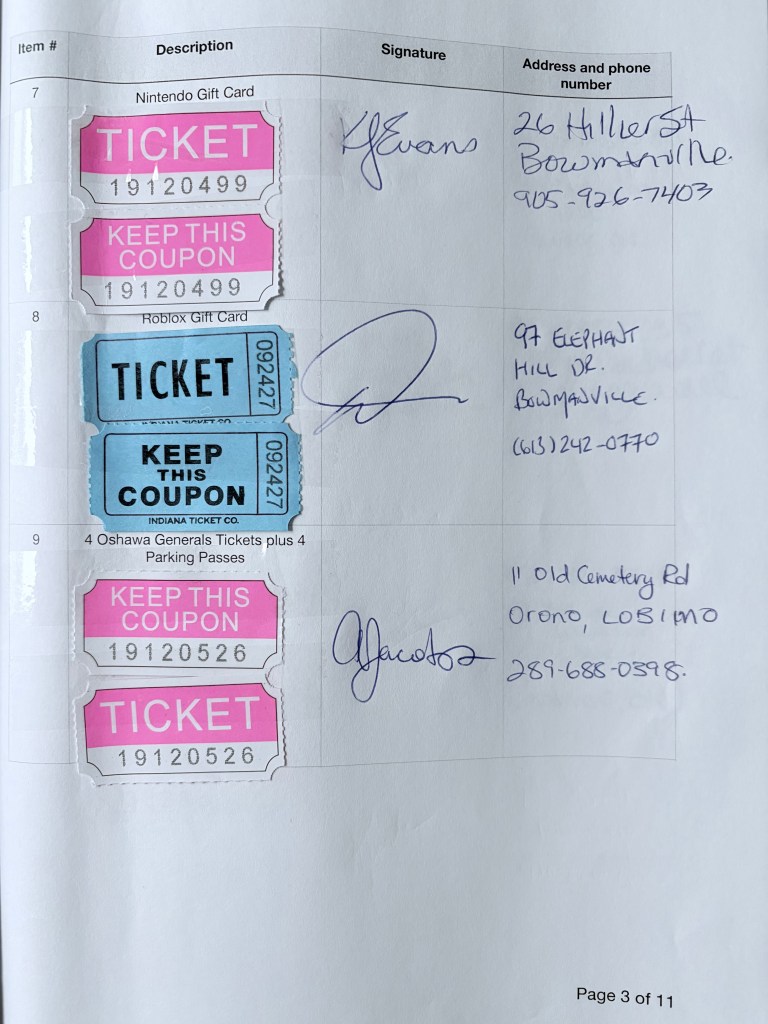 Item # Description Signature Address and phone
number
7 Nintendo Gift Card
TICKET
19120499
KEEP THIS
COUPON
19120499
KJEvans
26 Hillier St
Bowmanville.
905-926-7403
8 Roblox Gift Card
TICKET
092427
INDIANA TICKET CO.
KEEP
THIS
COUPON
092427
INDIANA TICKET CO.
97 ELEPHANT
HILL DR.
BOWMANVILLE.
(613) 242-0770
9 4 Oshawa Generals Tickets plus 4
Parking Passes
KEEP THIS
COUPON
19120526
TICKET
19120526
11 Old Cemetery Rd
Orono, L0B1M0
289-688-0398.
Page 3 of 11